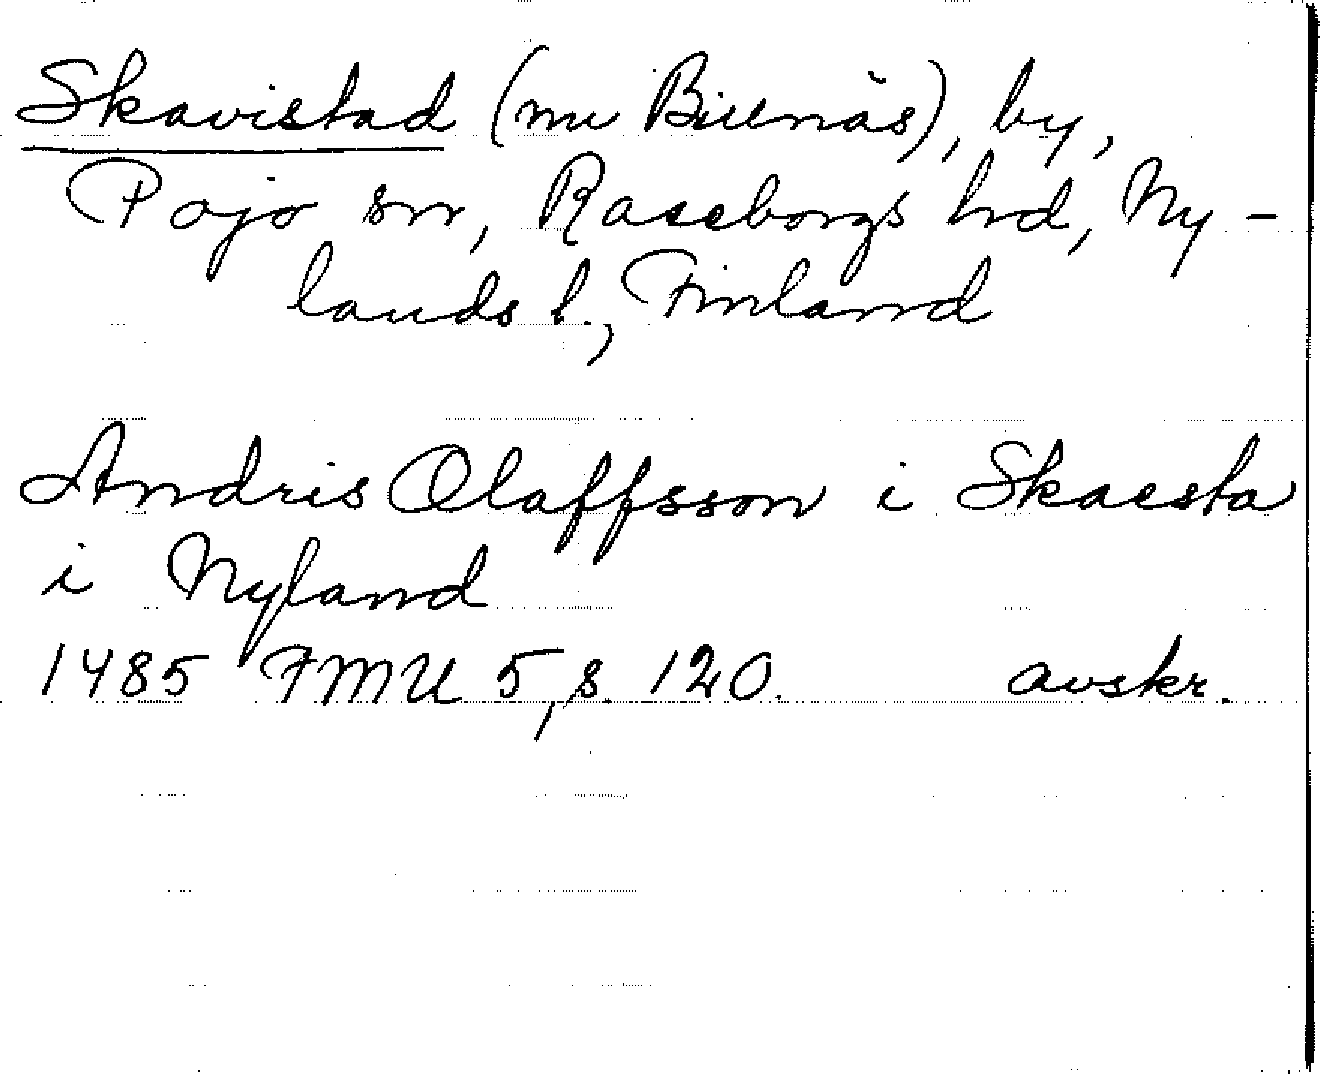 Skavistad (nu Billnäs), by,
Pojo sn, Raseborgs hd, Ny-
lands l., Finland
Andris Olaffsson i Skaesta
i Nyland
1485 FMU 5, s. 120. avskr.